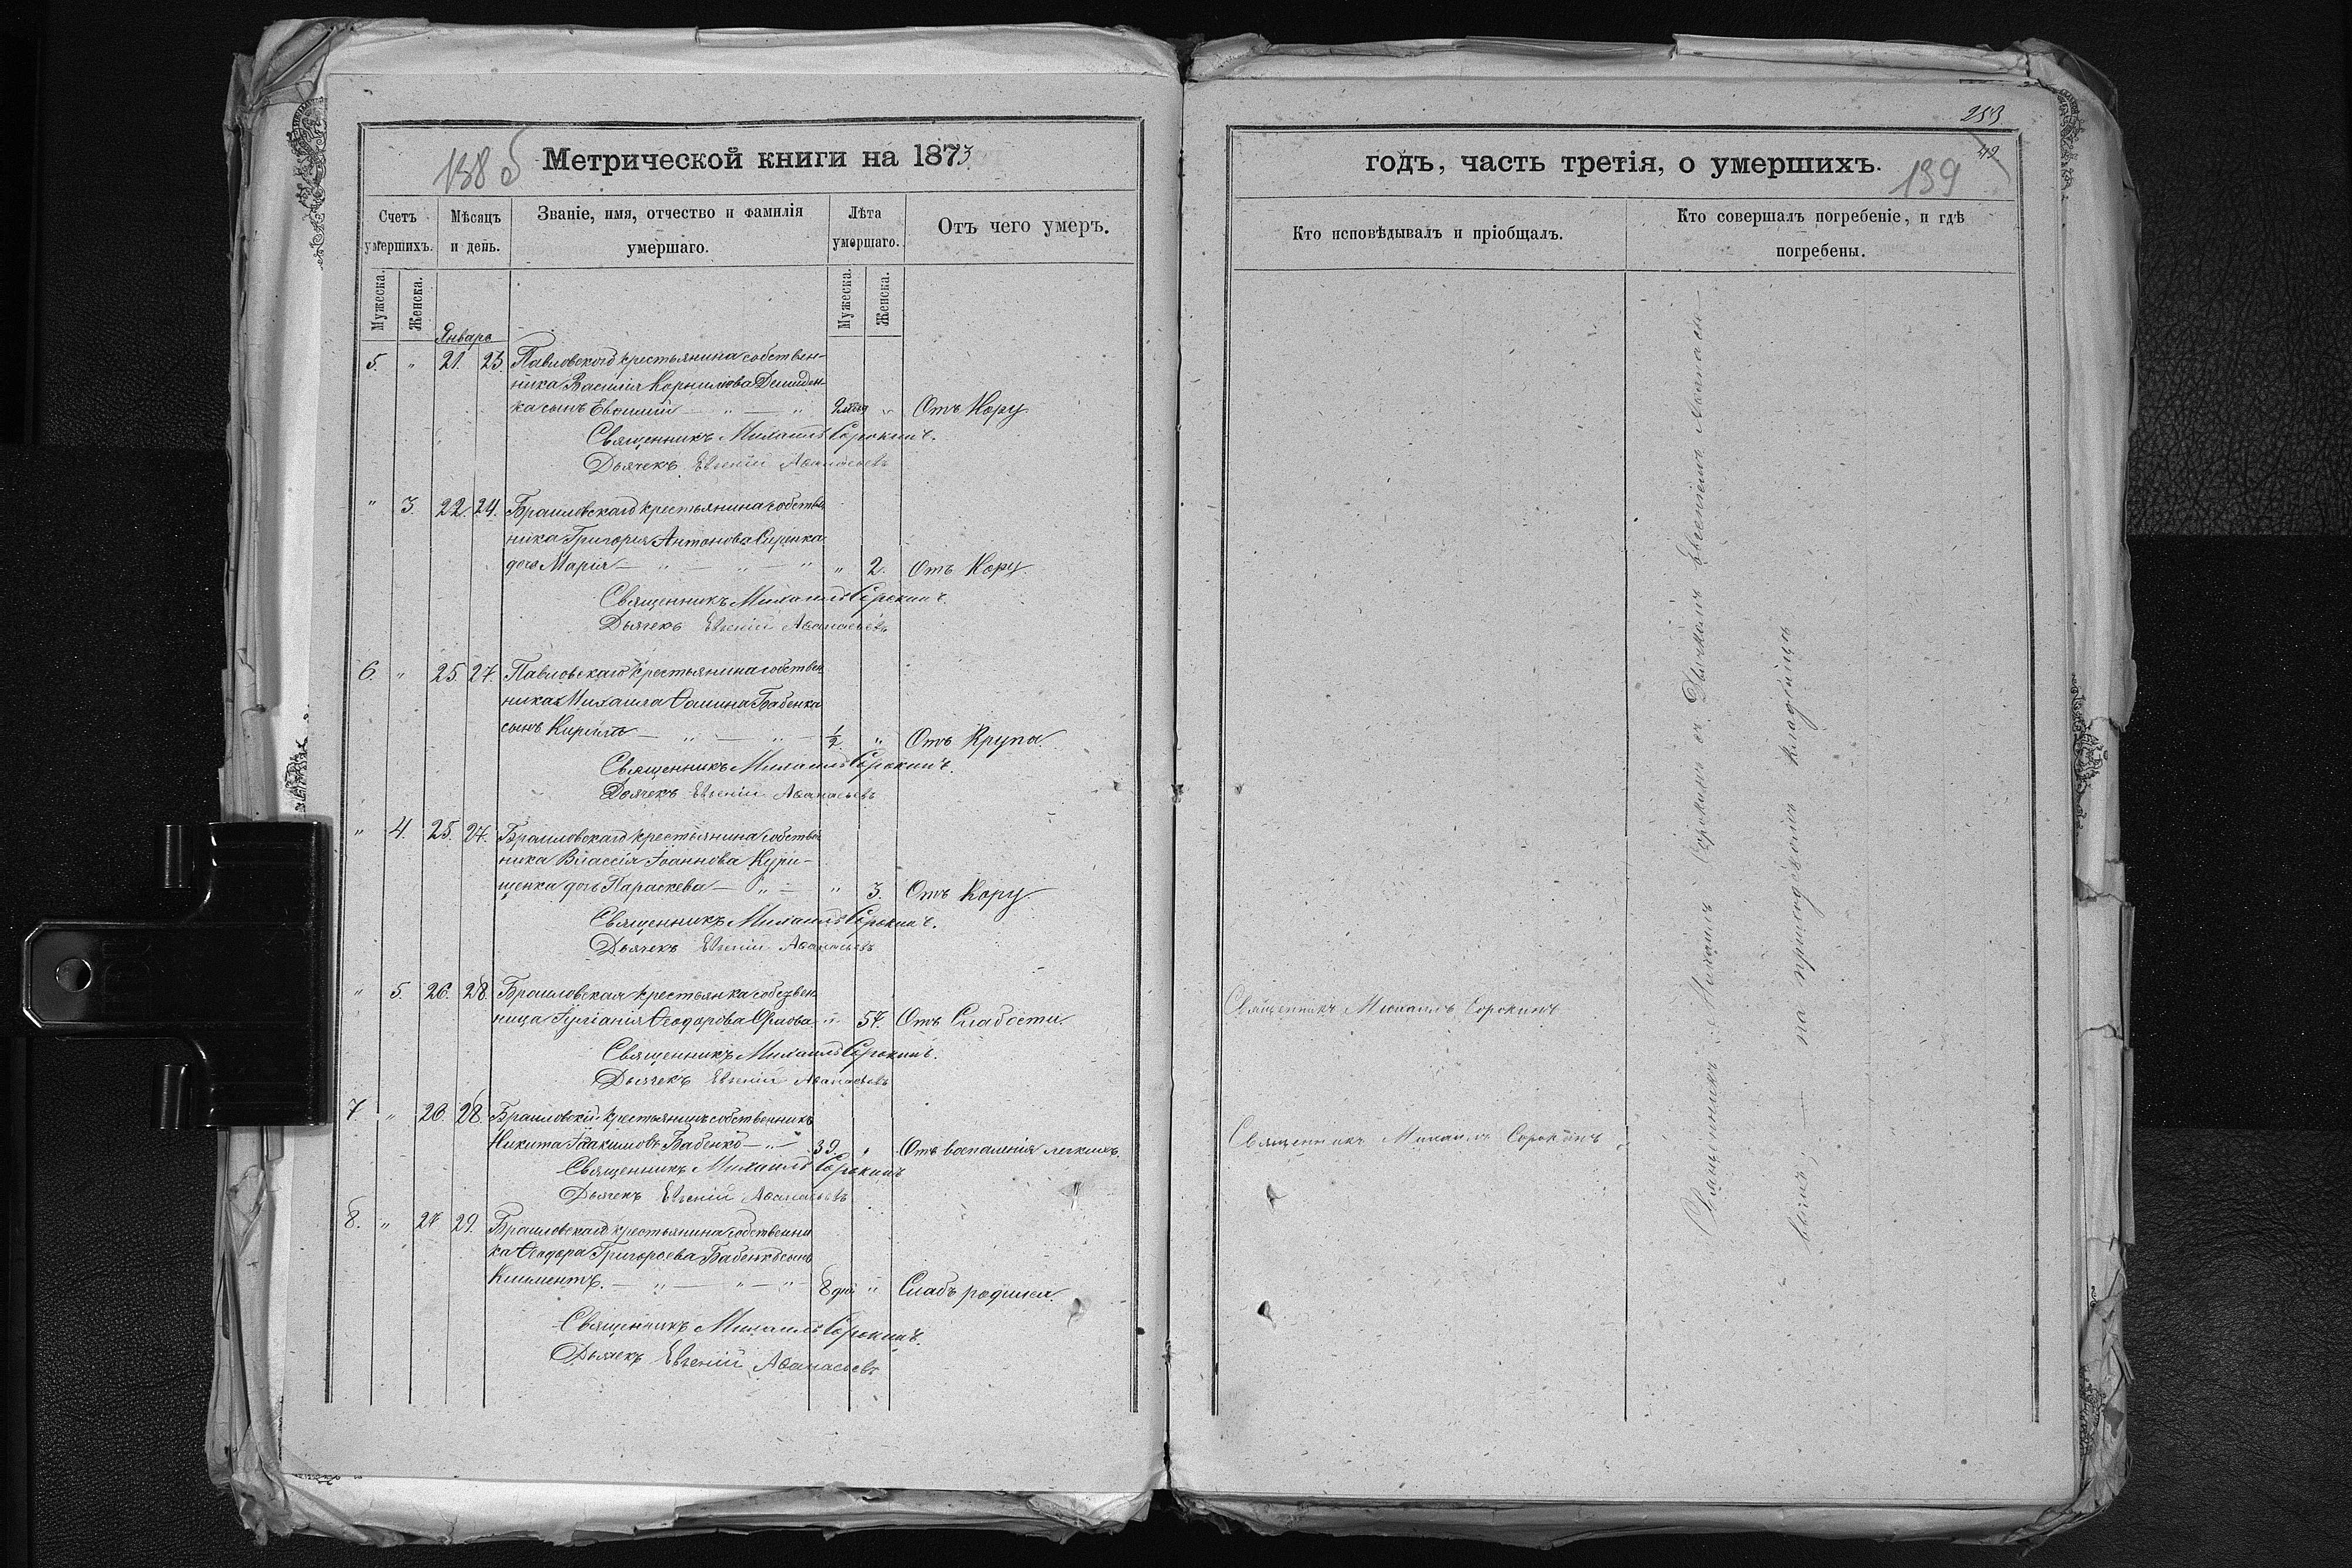 138 б
Метрической книги на 1873
Счетъ умершихъ.
Мѣсяцъ и день.
Званіе, имя, отчество и фамилія умершаго.
Лѣта умершаго.
Отъ чего умеръ.
Мужеска.
Женска.
Мужеска.
Женска.
Январь
5. " 21. 23. Павловскаго крестьянина собствен-
ника Василія Корнилова Демиден-
ка сынъ Евѳимій — " — " "  Отъ Кору.
Священникъ Михаилъ Сорокинъ.
Дьячекъ Евгеній Аѳанасьевъ
" 3. 22. 24. Браиловскаго крестьянина собствен
ника Григорія Антонова Сиренка
дочь Марія — " — " — " " 2. Отъ Кору.
Священникъ Михаилъ Сорокинъ.
Дьячекъ Евгеній Аѳанасьевъ
6. " 25. 27. Павловскаго крестьянина собствен
ника Михаила Ѳомина Бабенка
сынъ Кирилъ — " — " — 1/2 " Отъ Крупа.
Священникъ Михаилъ Сорокинъ.
Дьячекъ Евгеній Аѳанасьевъ
" 4. 25. 27. Браиловскаго крестьянина собствен
ника Влассія Іоаннова Кури-
щенка дочь Параскева — " — " 3. Отъ Кору
Священникъ Михаилъ Сорокинъ.
Дьячекъ Евгеній Аѳанасьевъ
" 5. 26. 28. Браиловская крестьянка собствен
ница Іуліанія Ѳеодорова Орлова " 57. Отъ Слабости.
Священникъ Михаилъ Сорокинъ.
Дьячекъ Евгеній Аѳанасьевъ
7. " 26. 28. Браиловскій крестьянинъ собственникъ
Никита Іоакимовъ Бабенко — " — 39. " Отъ воспаленія легкихъ.
Священникъ Михаилъ Сорокинъ
Дьячекъ Евгеній Аѳанасьевъ
8. " 27. 29. Браиловскаго крестьянина собственни
ка Ѳеодора Григорьева Бабенка сынъ
Климентъ. — " — " — " — 8 дней " Слабъ родился.
Священникъ Михаилъ Сорокинъ.
Дьячекъ Евгеній Аѳанасьевъ
253
42
годъ, часть третія, о умершихъ.
139
Кто исповѣдывалъ и пріобщалъ.
Кто совершалъ погребеніе, и гдѣ погребены.
Священникъ Михаилъ Сорокинъ
Священникъ Михаилъ Сорокинъ
Священникъ Михаилъ Сорокинъ съ Дьячкомъ Евгеніемъ Аѳанасье-
вымъ, — на приходскомъ кладбищѣ